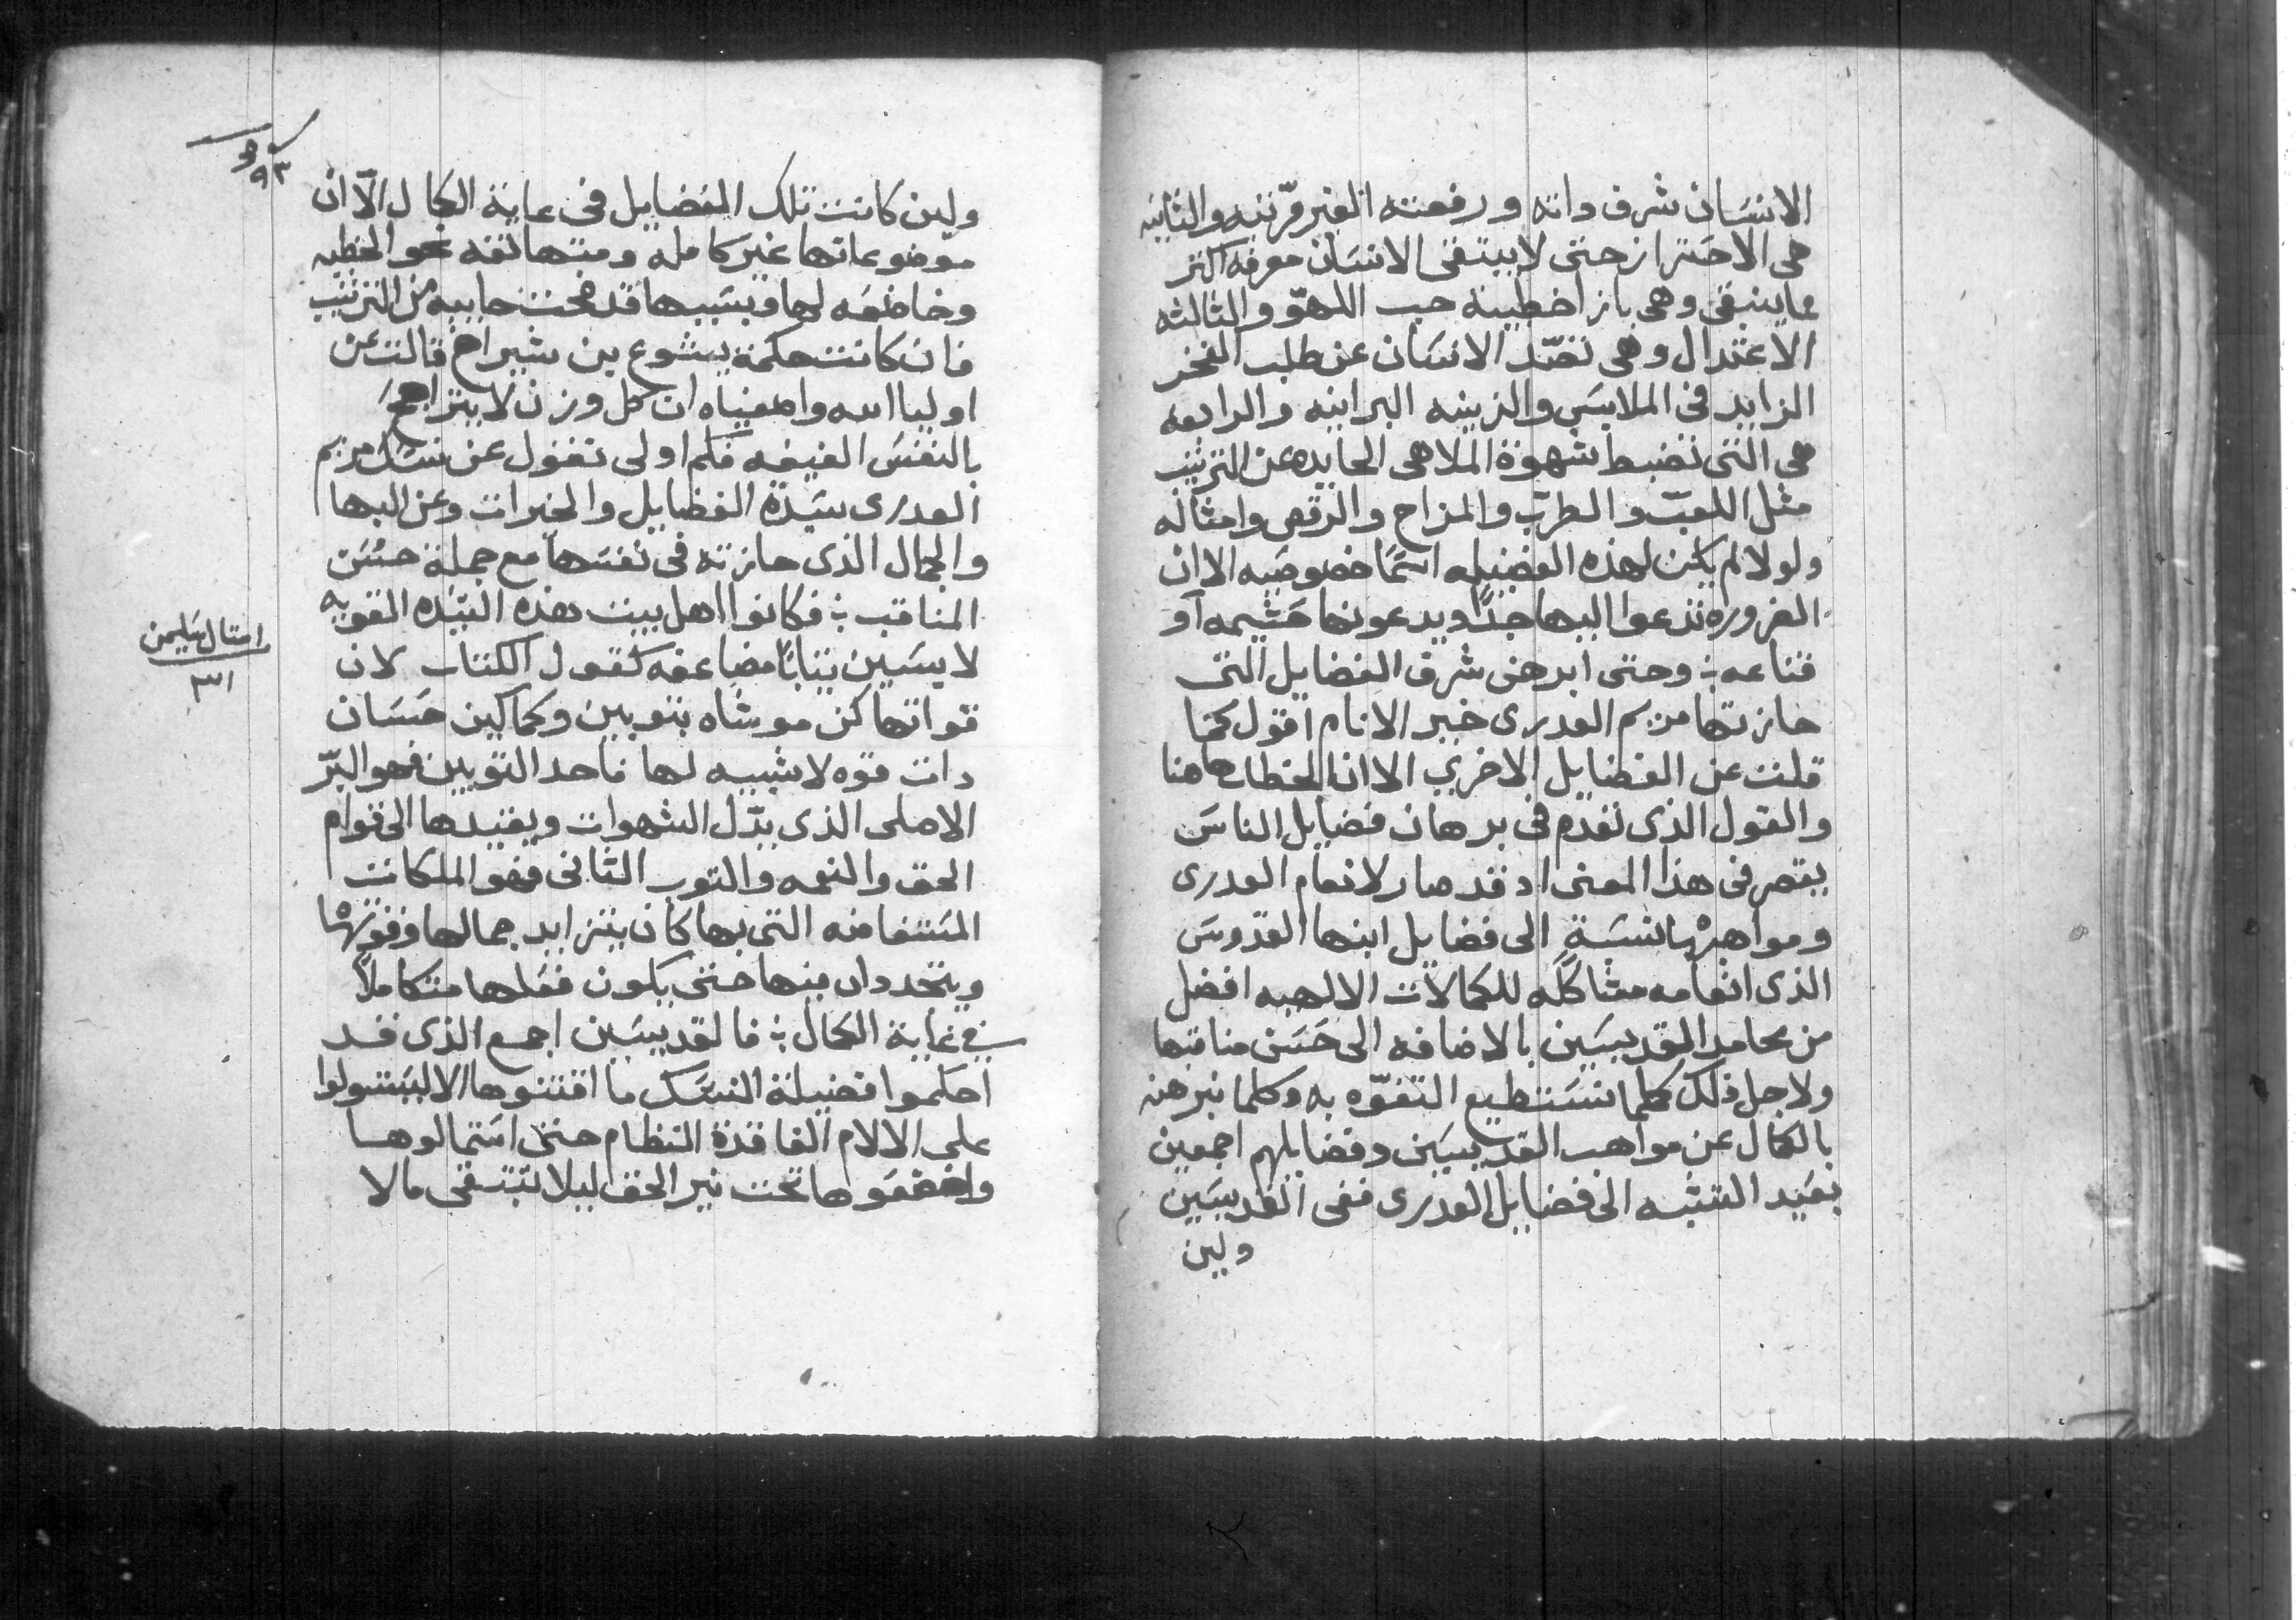 الانسان شرف داته ورفعته الغير مرتبه والثانيه
هى الاحتراز حتى لا يبتغى الانسان معرفة اكثر
مما ينبغى وهى بازا خطية حب اللهو والثالثه
الاعتدال وهى تضد الانسان عن طلب الفخر
الزايد فى الملابس والزينه البرانيه والرابعه
هى التى تضبط شهوة الملاهى الحايده عن الترتيب
مثل اللعب والطرب والمزاح والرقص وامثاله
ولو لا لم يكن لهذه الفضيله اسما خصوصيه الا ان
الضروره تدعوا اليها جدا ويدعونها حشيمه او
قناعه ؛ وحتى ابرهن شرف الفضايل التى
حازتها مريم العدرى خير الانام اقول كما
قلت عن الفضايل الاخرى الا ان الخطاب هاهنا
والقول الذى تقدم فى برهان فضايل الناس
يقصر فى هذا المعنى اد قد صار لانعام العدرى
ومواهبها نسبة الى فضايل ابنها القدوس
الذى انعامه مشاكله للكمالات الالهيه افضل
من محامد القديسين بالاضافه الى حسن مناقبها
ولاجل ذلك كلما نستطيع التفوه به وكلما نبرهنه
بالكمال عن مواهب القديسين وفضايلهم اجمعين
بعيد التشبه الى فضايل العدرى ففى القديسين
ولين
٩٣
ولين كانت تلك الفضايل فى غاية الكمال الا ان
موضوعاتها غير كامله ومتهافته نحو الخطيه
وخاضعه لها وبسببها قد صحت حاييه من الترتيب
فان كانت حكمة يشوع بن شيراخ قالت عن
اوليا الله واصفياه ان كل وزن لا يتراجح
بالنفس العفيفه فكم اولى تقول عن نسك مريم
العدرى سيدة الفضايل والخيرات وعن البها
والجمال الذى حازته فى نفسها مع جملة حسن
المناقب ؛ فكانوا اهل بيت هذه السيده القويه
لابسين تيابا مضاعفه كقول الكتاب لان
قواتها كن موشاه بتوبين وكماكين حسان
دات قوه لا شبيه لها فاحد التوبين فهو البر
الاصلى الذى يدل الشهوات ويقيدها الى قوام
الحق والنعمه والتوب التانى فهو الملكات
المستفاضه التى بها كان يتزايد جمالها وقوتها
ويتحددان منها حتى يكون فعلها متكاملا
فى غاية الكمال ؛ فالقديسين اجمع الذى قد
احكموا فضيلة النسك ما اقتنوها الا ليستولوا
على الالام الفاقدة النظام حتى استمالوها
واخضعوها تحت نير الحق ليلا تبتغى ما لا
امتال سليمن
٣١